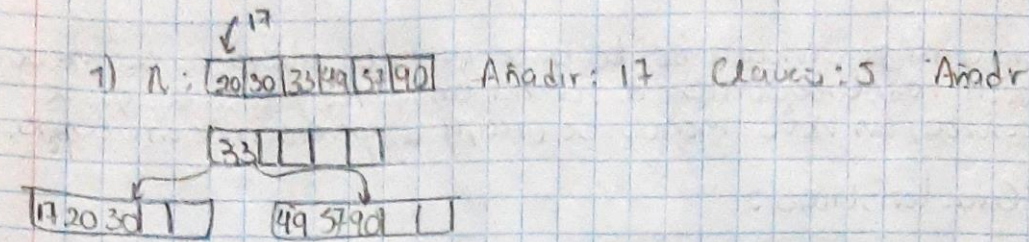 17
1) n: 20 30 33 49 57 90 Añadir: 17 Claves: 5 Añadr
33
17 20 30 49 57 90